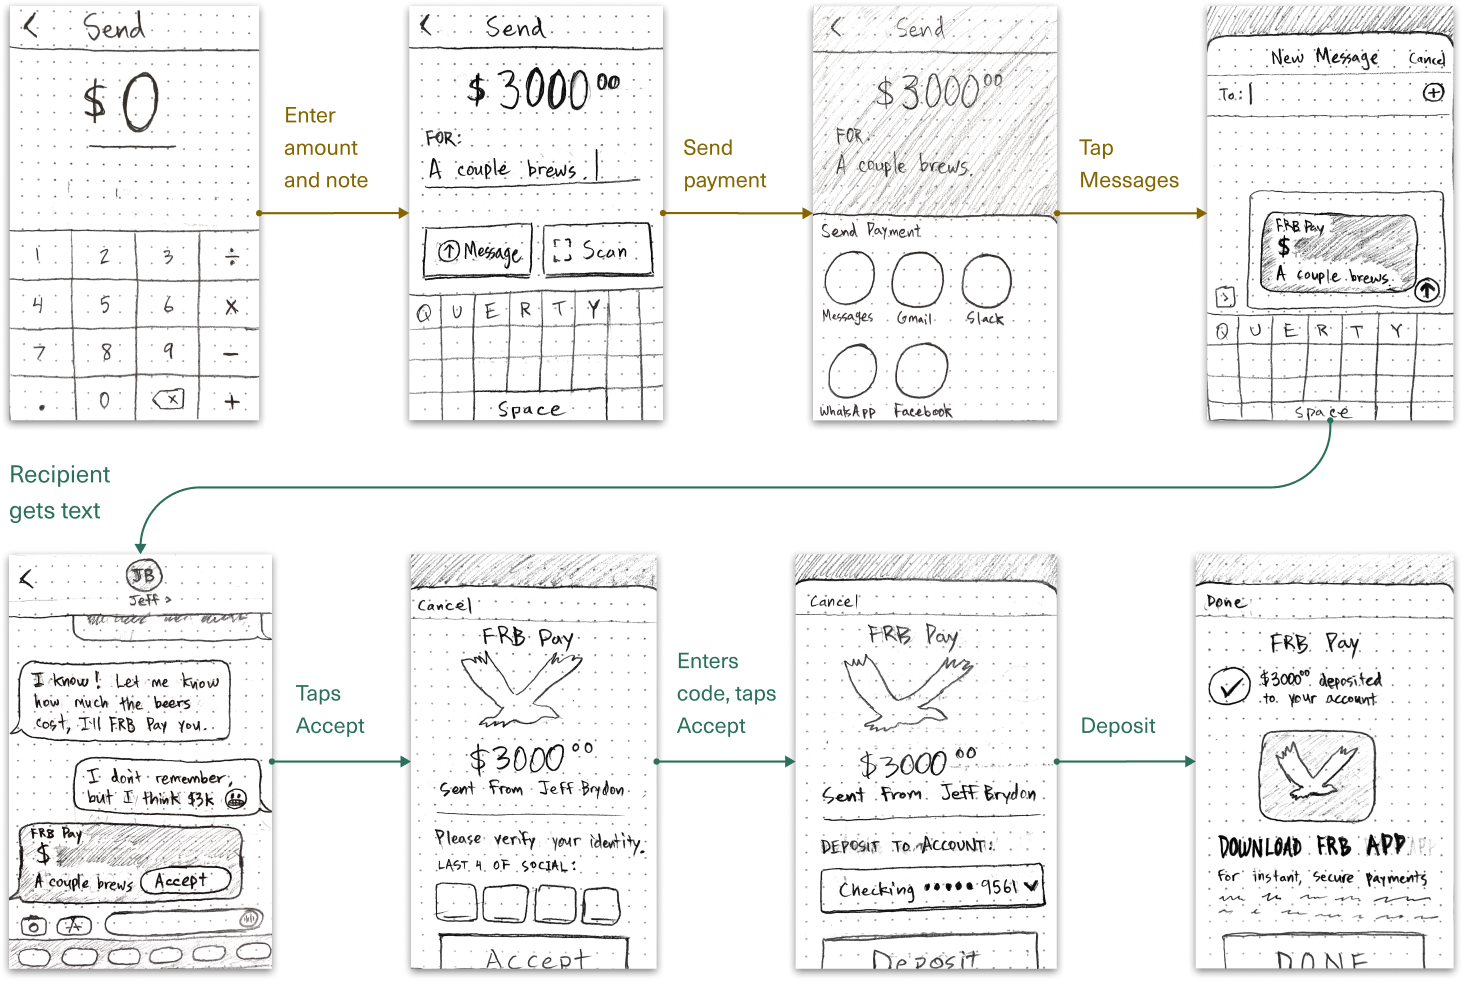 Send
$ 0
1 2 3 ÷
4 5 6 x
7 8 9 -
. 0 x +
Enter
amount
and note
Send
$ 3000 00
FOR:
A couple brews.
Message
Scan
Q U E R T Y
Space
Send
payment
Send
$ 3000 00
FOR:
A couple brews.
Send Payment
Messages Gmail Slack
WhatsApp Facebook
Tap
Messages
New Message Cancel
To:
FRB Pay
$
A couple brews.
Q U E R T Y
Space
Recipient
gets text
JB
Jeff >
I know! Let me know
how much the beers
cost, I'll FRB Pay you.
I don't remember,
but I think $3k
FRB Pay
$
A couple brews Accept
Taps
Accept
Cancel
FRB Pay
$3000 00
Sent From Jeff Brydon
Please verify your identity.
LAST 4 OF SOCIAL:
Accept
Enters
code, taps
Accept
Cancel
FRB Pay
$3000 00
Sent From Jeff Brydon
DEPOSIT TO ACCOUNT:
Checking ••••• 9561
Deposit
Deposit
Done
FRB Pay
$3000 00 deposited
to your account
DOWNLOAD FRB APP
For instant, secure payments
DONE